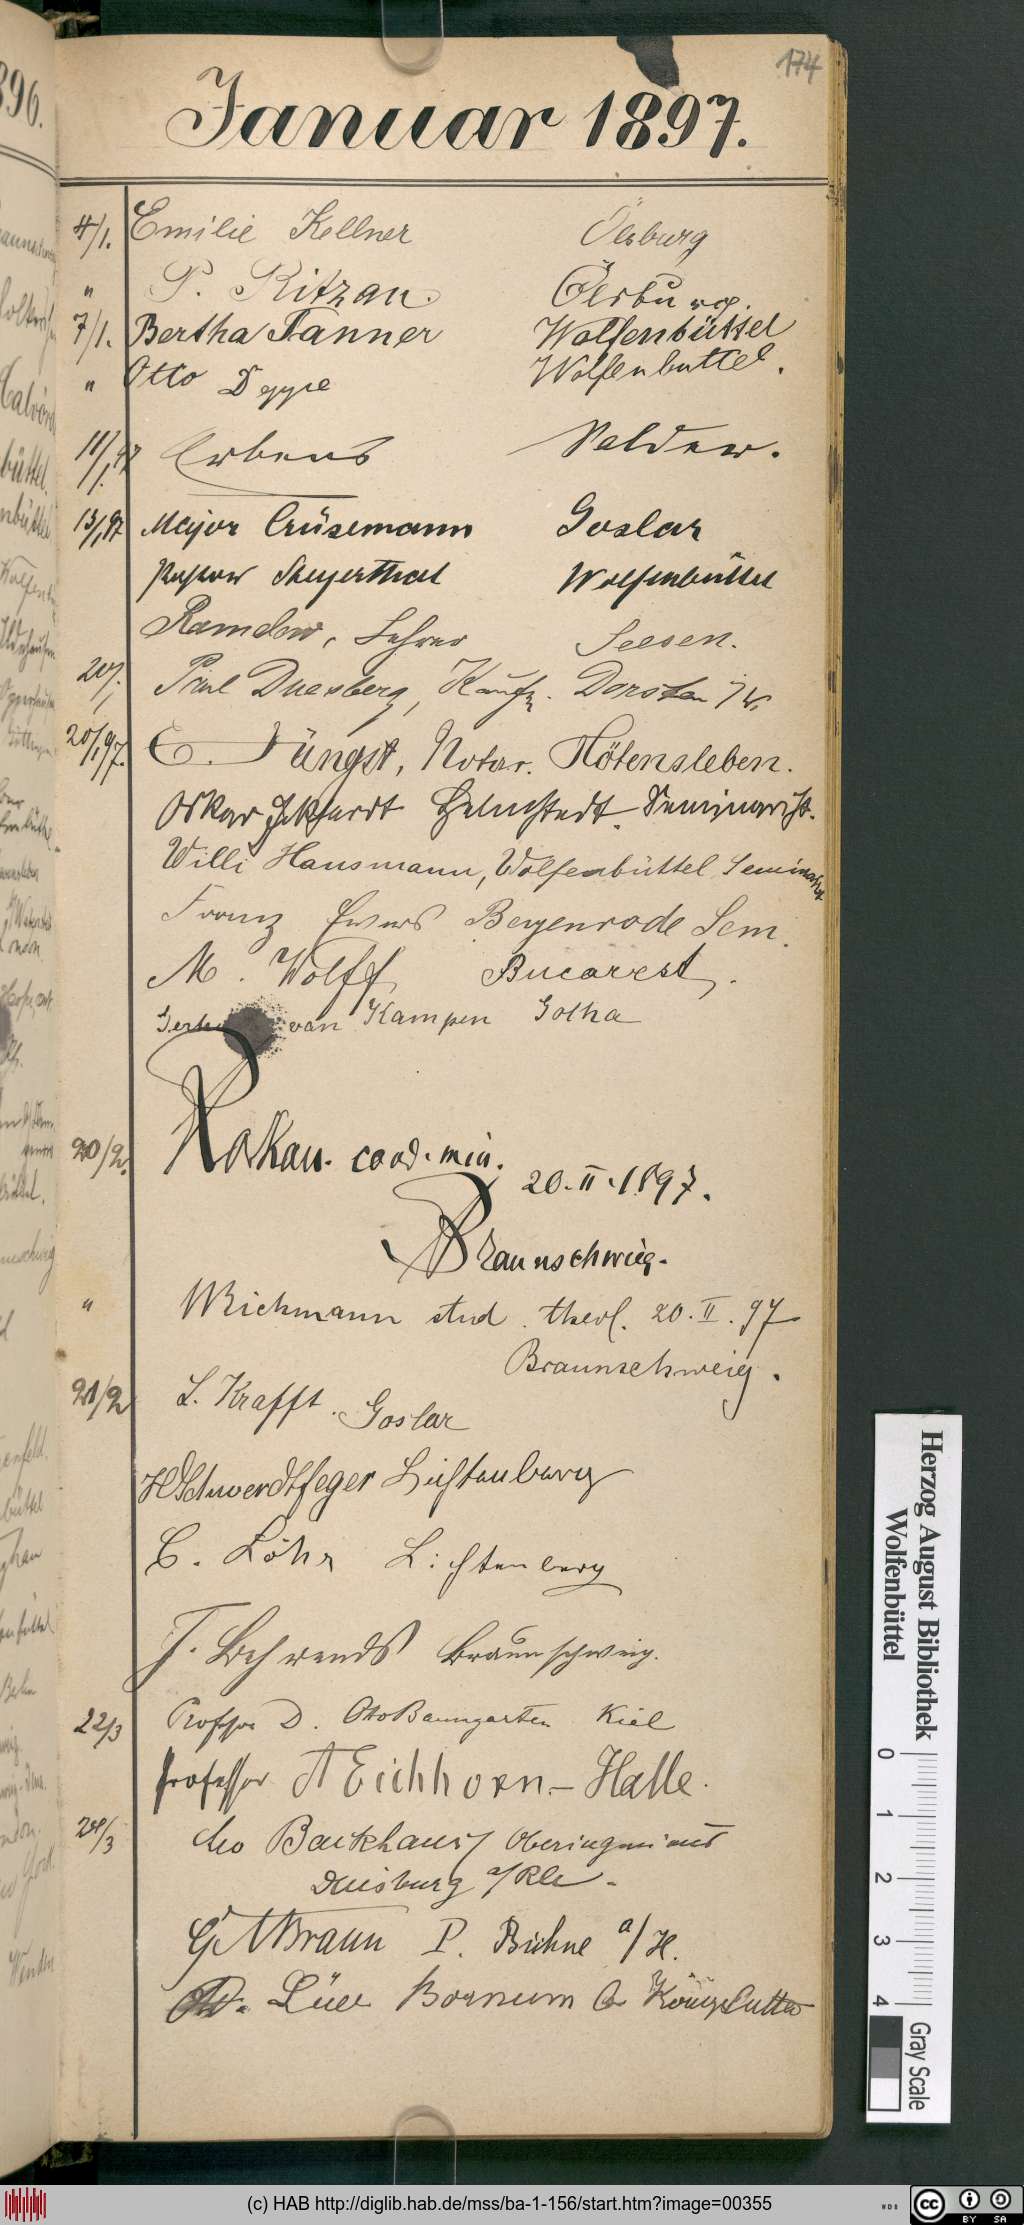 174
Januar 1897.
4/1. Emilie Kellner Ölsburg
" P. Ritzau. Ölsburg.
7/1. Bertha Tanner Wolfenbüttel
" Otto Deppe Wolfenbüttel.
11/1.97
13/1.97 Major Crüsemann Goslar
Pastor Wolfenbüttel
Ramdow, Lehrer Seesen.
20/1. Paul Duesberg, Kaufm. Dorsten i/W.
20/1.97. E. Jüngst, Notar. Hötensleben.
Oskar Helmstedt. Seminarist.
Willi Hausmann, Wolfenbüttel, Seminarist
Franz Ewers Sem.
M. Wolff, Bucarest.
van Kampen Gotha
20/2. cand. min.
20.II.1897.
Braunschweig.
" WRichmann stud. theol. 20.II.97
Braunschweig.
21/2 L. Krafft. Goslar
HSchwerdtfeger Lichtenberg
C. Löhr Lichtenberg
J. Behrends Braunschweig.
22/3 Professor D. Otto Baumgarten Kiel
Professor A Eichhorn - Halle.
24/3 Backhaus Oberingenieur
Duisburg a/Rh.
Braun P. Bühne a/H.
Lüer Bornum b. Königslutter
Herzog August Bibliothek
Wolfenbüttel
0 1 2 3 4
Gray Scale
(c) HAB http://diglib.hab.de/mss/ba-1-156/start.htm?image=00355
WDB
cc BY SA